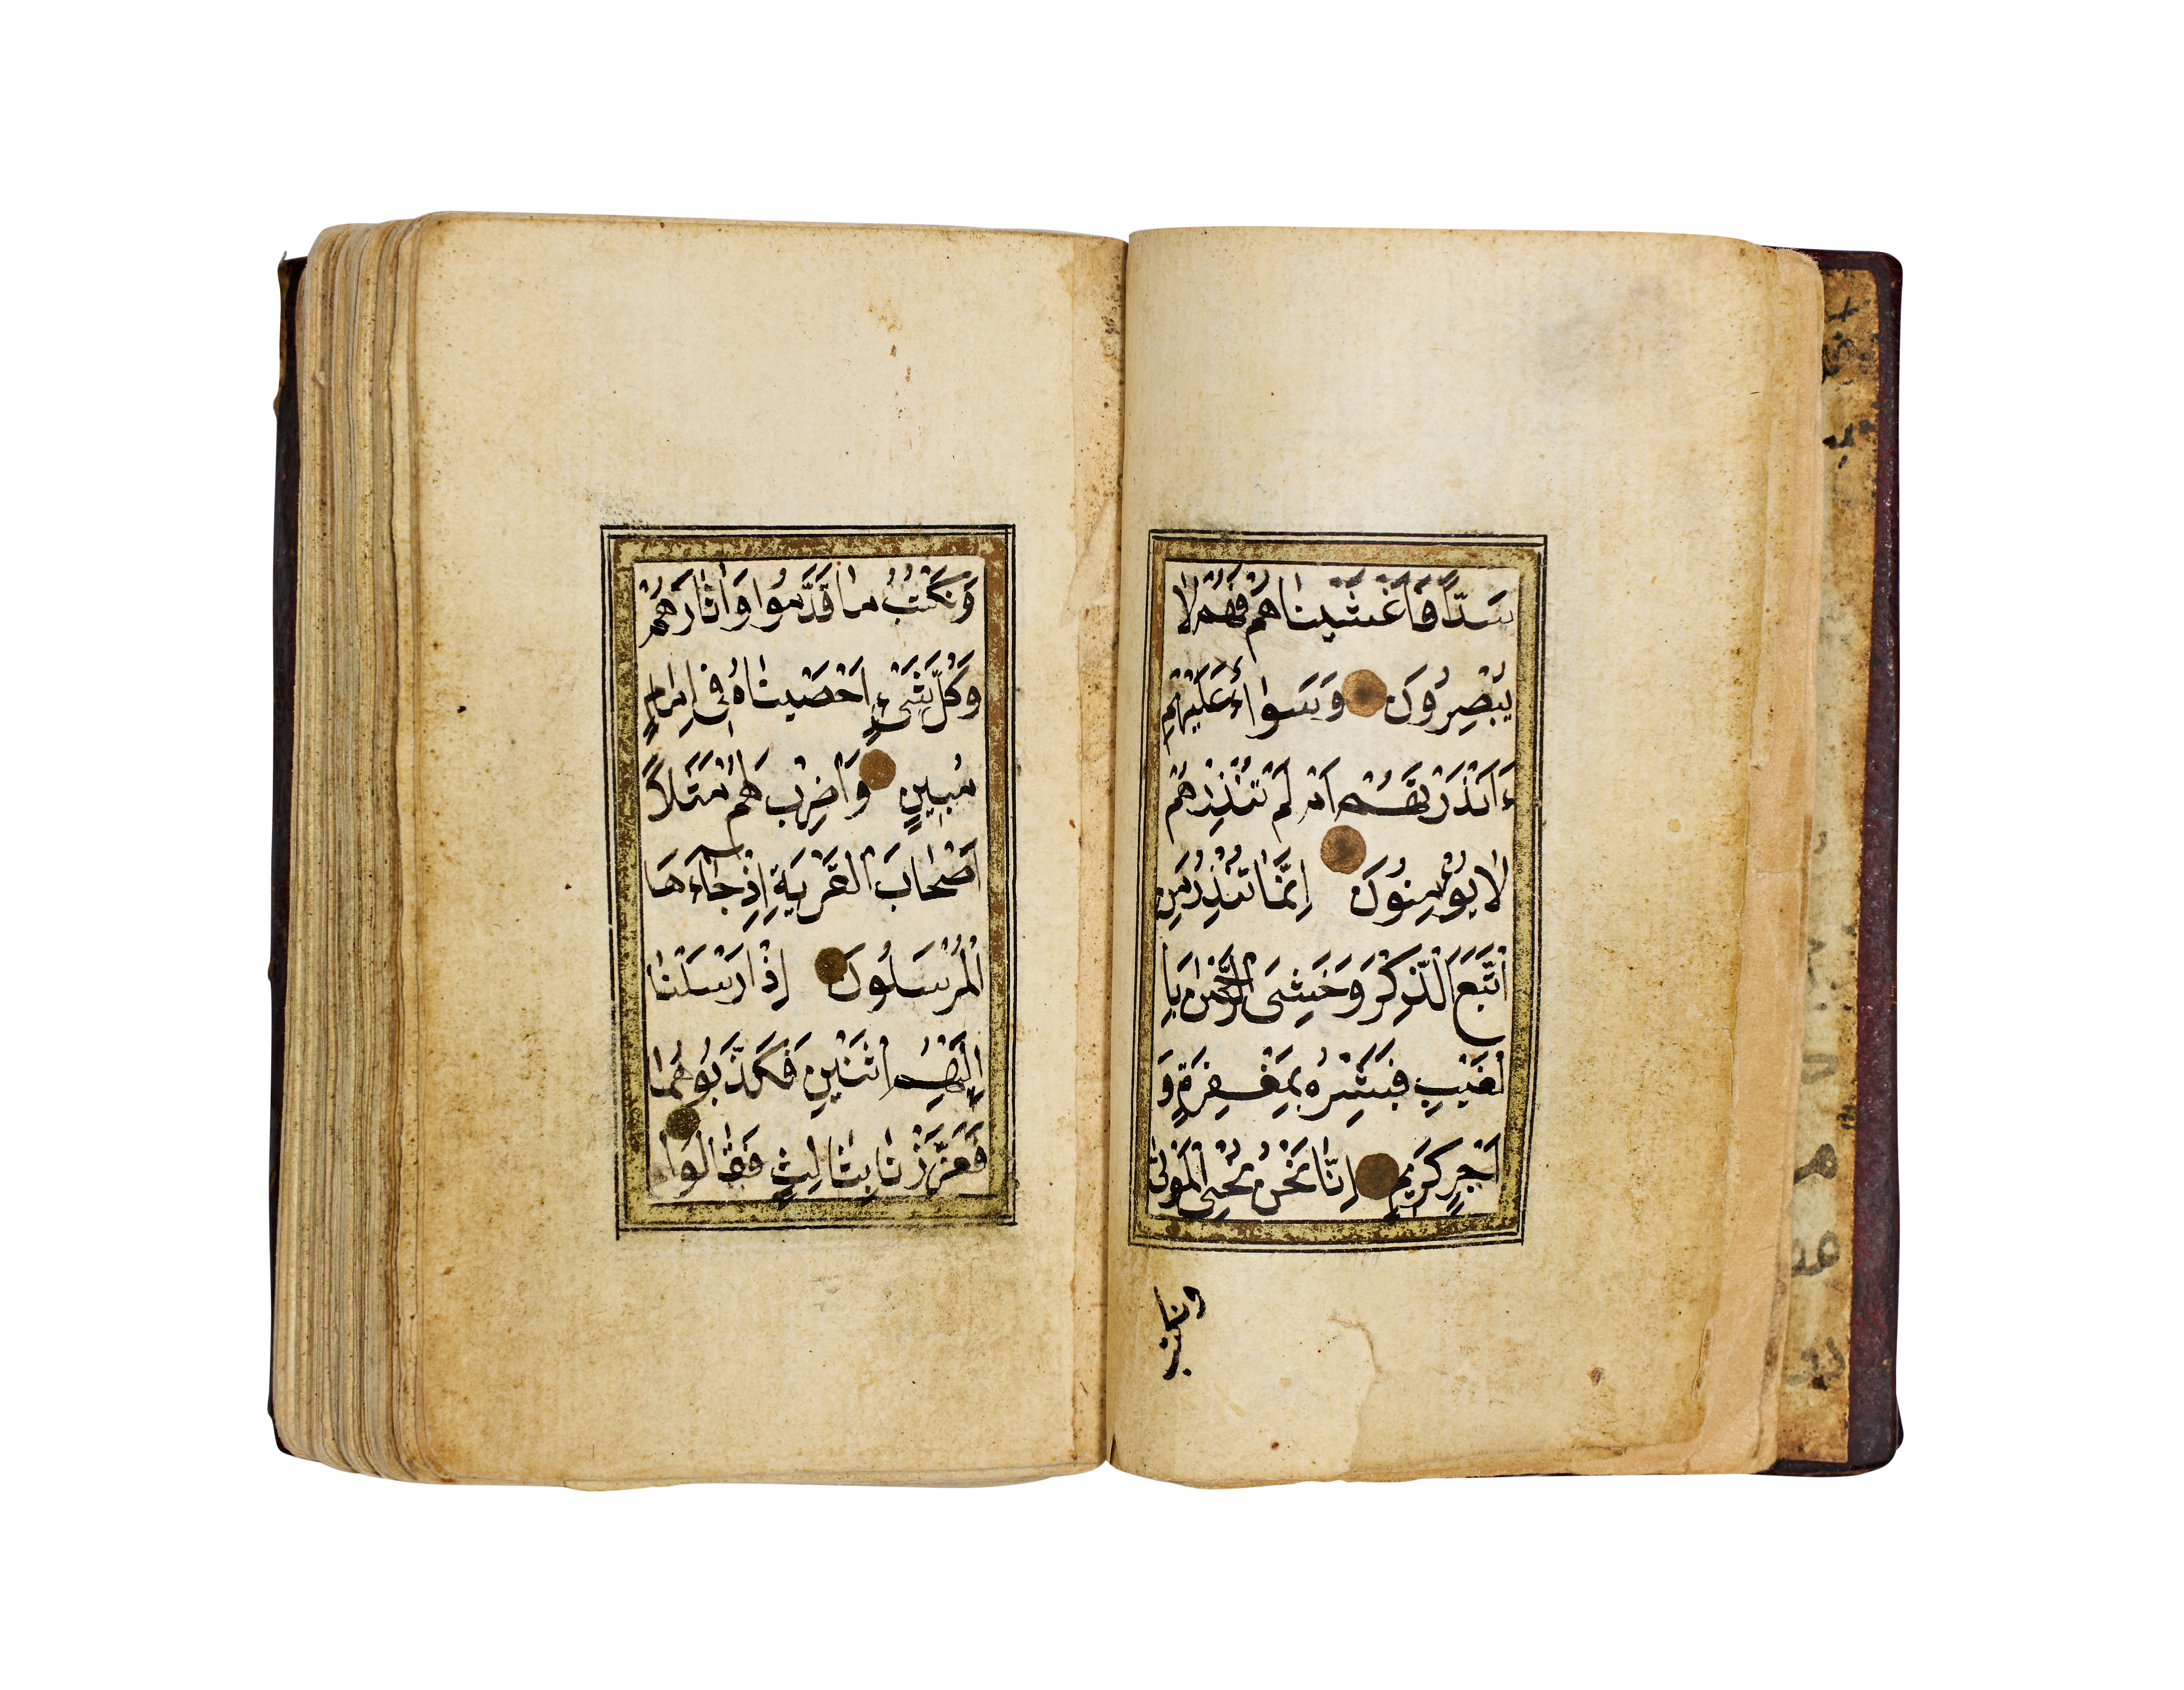 سَدًّا فَاَغْشَيْنَاهُمْ فَهُمْ لَا
يُبْصِرُونَ وَسَوَاءٌ عَلَيْهِمْ
ءَاَنْذَرْتَهُمْ اَمْ لَمْ تُنْذِرْهُمْ
لَا يُؤْمِنُونَ اِنَّمَا تُنْذِرُ مَنِ
اتَّبَعَ الذِّكْرَ وَخَشِىَ الرَّحْمٰنَ بِا
لْغَيْبِ فَبَشِّرْهُ بِمَغْفِرَةٍ وَ
اَجْرٍ كَرِيمٍ اِنَّا نَحْنُ نُحْيِى الْمَوْتٰى
ونكتب
وَنَكْتُبُ مَا قَدَّمُوا وَاٰثَارَهُمْ
وَكُلَّ شَىْءٍ اَحْصَيْنَاهُ فِى اِمَامٍ
مُبِينٍ وَاضْرِبْ لَهُمْ مَثَلًا
اَصْحَابَ الْقَرْيَةِ اِذْ جَاءَهَا
الْمُرْسَلُونَ اِذْ اَرْسَلْنَا
اِلَيْهِمُ اثْنَيْنِ فَكَذَّبُوهُمَا
فَعَزَّزْنَا بِثَالِثٍ فَقَالُوا